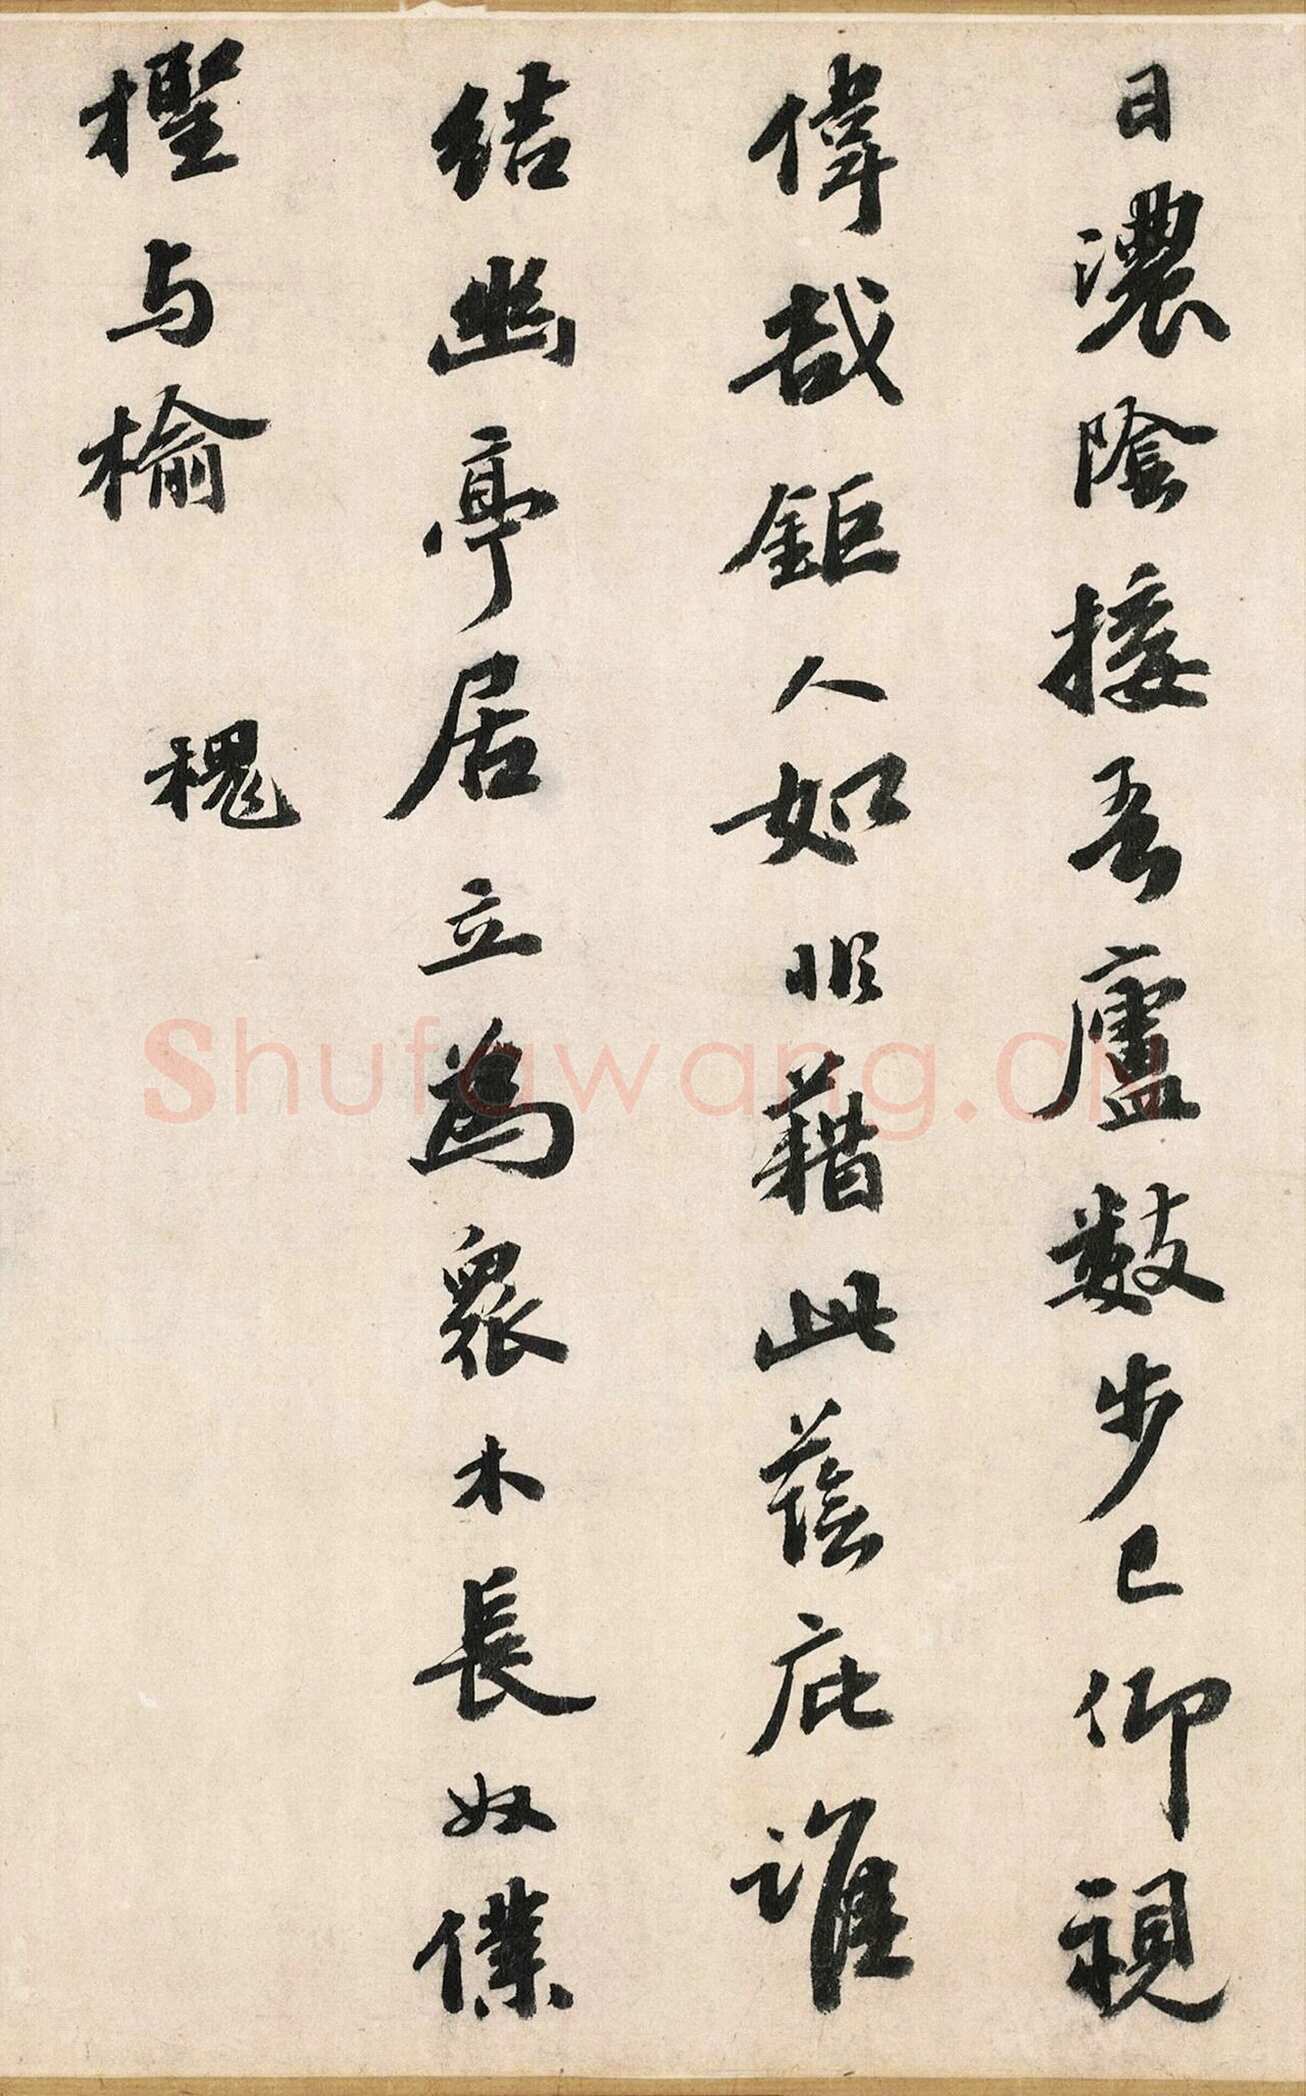 日濃陰接吾廬數步已仰視
偉哉鉅人如借藉此蔭庇誰
結幽亭居立為衆木長奴僕
檉与榆 槐
Shufawang.CN